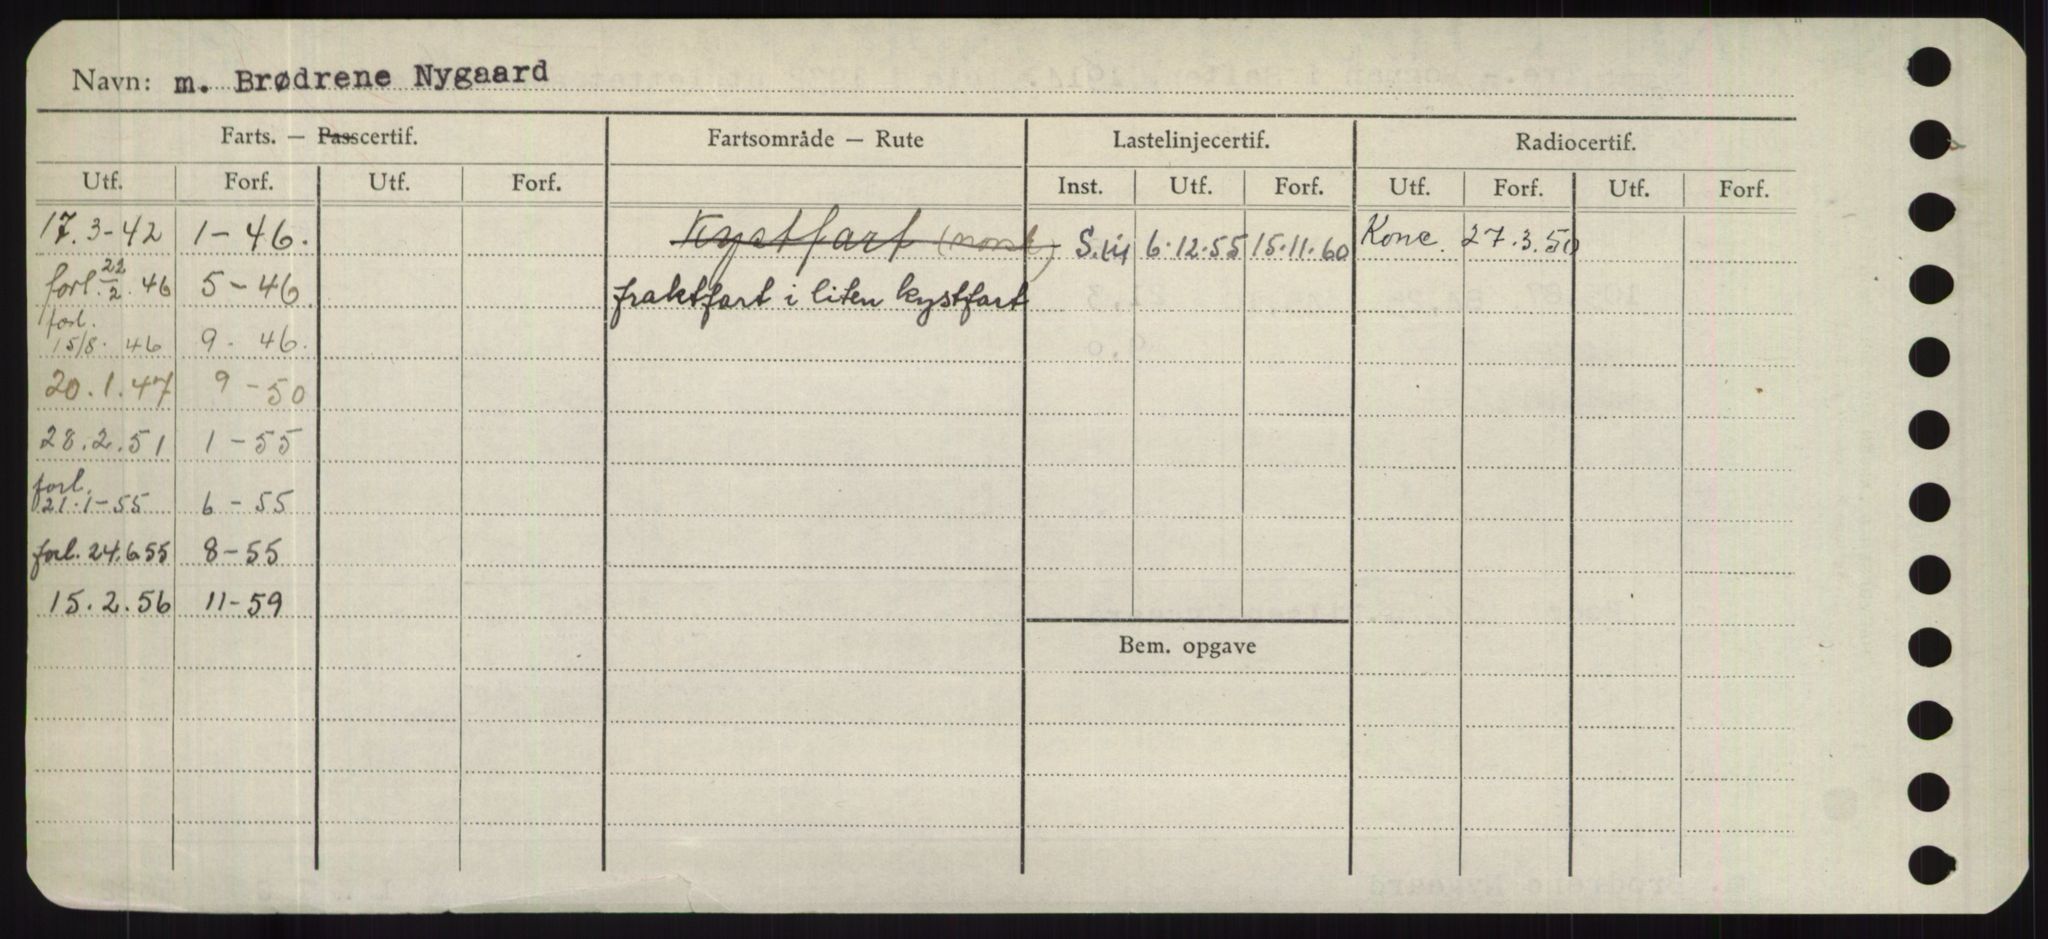 Navn: m. Brødrene Nygaard
Farts. — Passcertif. Fartsområde — Rute Lastelinjecertif. Radiocertif.
Utf. Forf. Utf. Forf. Inst. Utf. Forf. Utf. Forf. Utf. Forf.
17.3-42 1-46. Kystfart (norsk) 6.12.55 15.11.60 Konc. 27.3.50
forl. 22/2.46 5-46 fraktfart i liten kystfart
forl.
15/8.46 9-46.
20.1.47 9-50
28.2.51 1-55
forl.
21.1-55 6-55
forl. 24.6.55 8-55
15.2.56 11-59
Bem. opgave